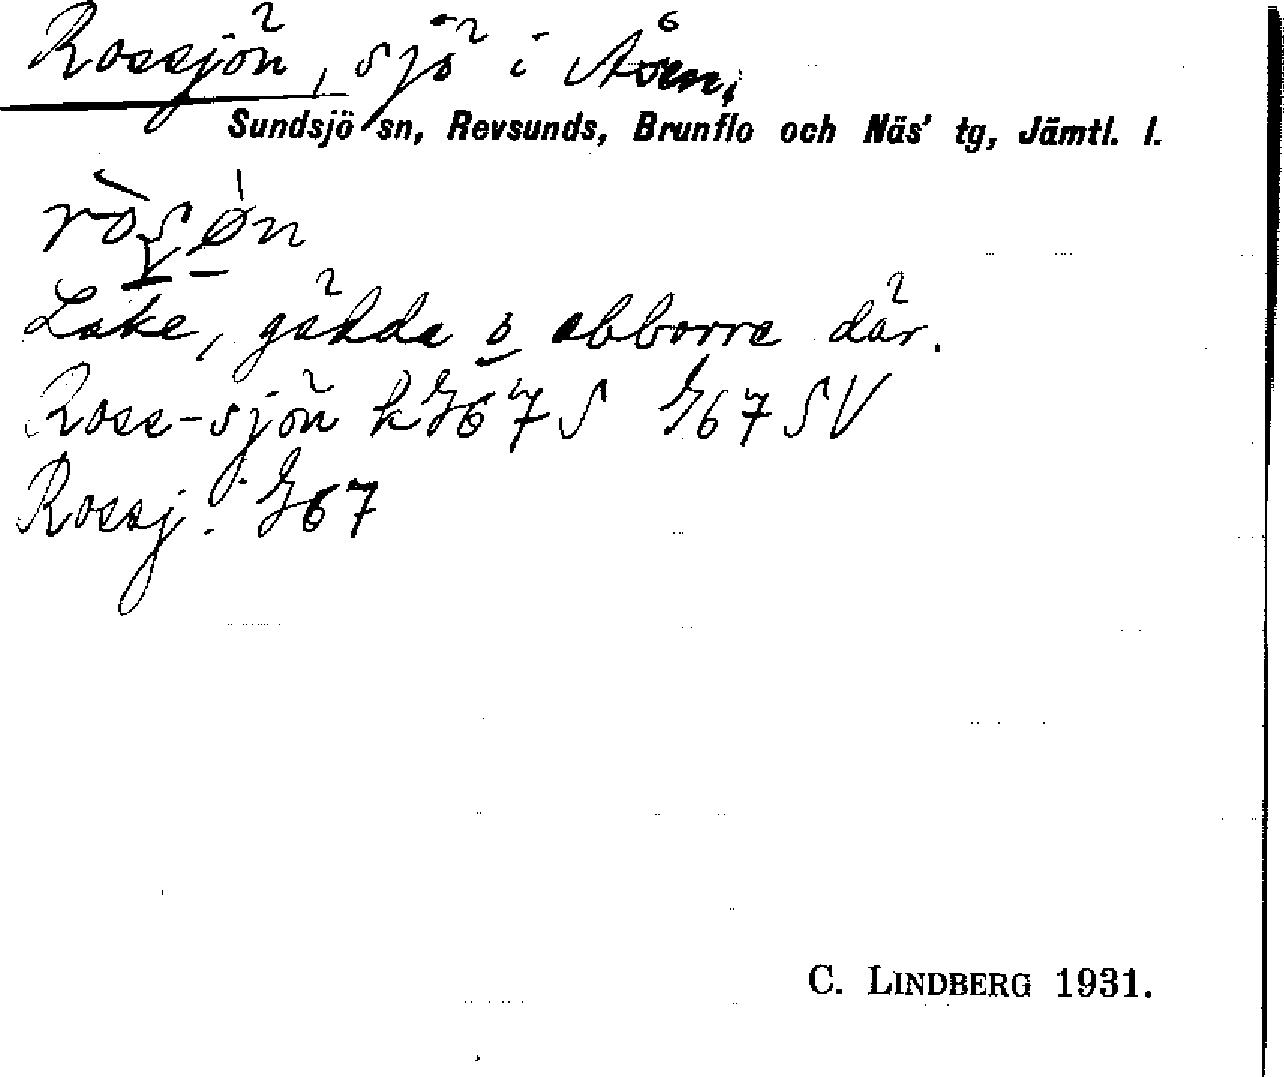 Rossjön, sjö i Åsen,
Sundsjö sn, Revsunds, Brunflo och Näs' tg, Jämtl. l.
Lake, gädda o abborre där.
Ross-sjön k G67 S G67 SV
Rossj. G67
C. LINDBERG 1931.